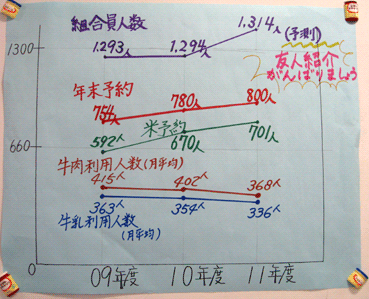 組合員人数
1,314人
(予測)
1300
1.293人
1.294人
友人紹介
がんばりましょう
年末予約
754人
780人
800人
米予約
592人
670人
701人
660
牛肉利用人数(月平均)
415人
402人
368人
363人
354人
336人
牛乳利用人数
(月平均)
0
09年度
10年度
11年度